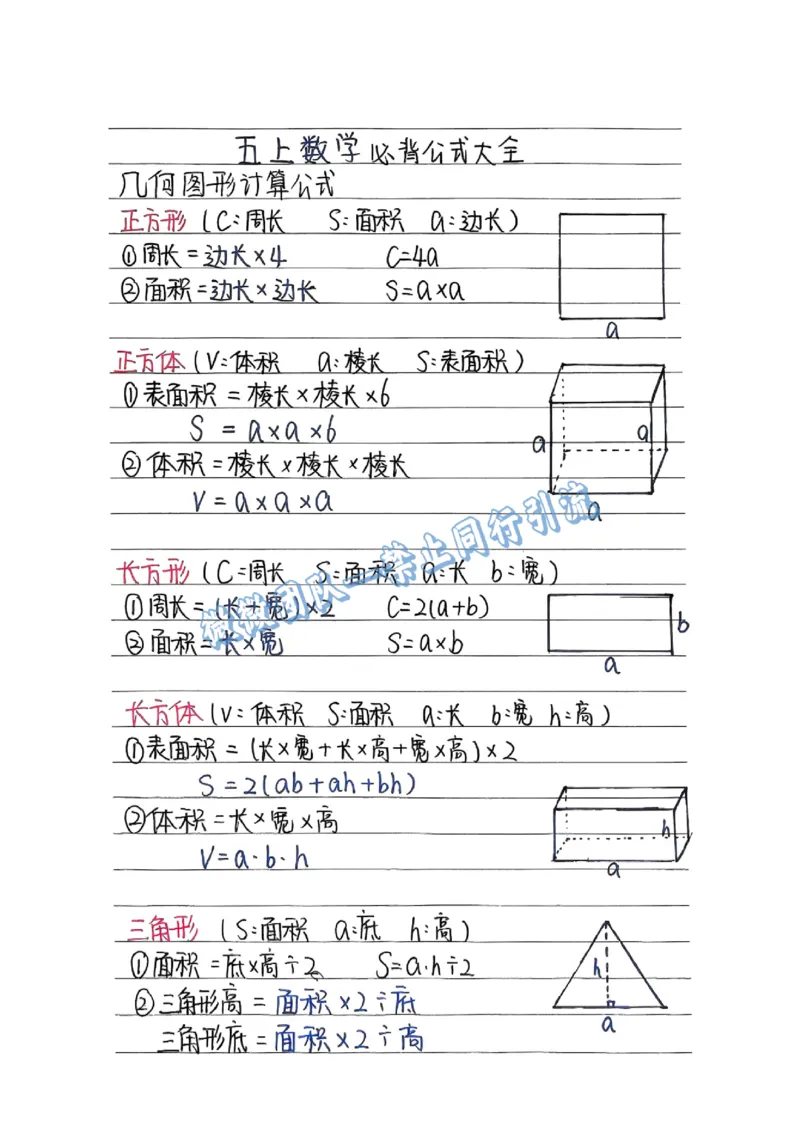 五上数学必背公式大全
几何图形计算公式
正方形（C:周长 S:面积 a:边长）
①周长=边长×4 C=4a
②面积=边长×边长 S=a×a
a
正方体（V:体积 a:棱长 S:表面积）
①表面积=棱长×棱长×6
S=a×a×6
②体积=棱长×棱长×棱长
V=a×a×a
a
a
a
微微团队—禁止同行引流
长方形（C=周长 S=面积 a=长 b=宽）
①周长=(长+宽)×2 C=2(a+b)
②面积=长×宽 S=a×b
b
a
长方体（V:体积 S:面积 a:长 b:宽 h:高）
①表面积=(长×宽+长×高+宽×高)×2
S=2(ab+ah+bh)
②体积=长×宽×高
V=a·b·h
h
a
三角形（S:面积 a:底 h:高）
①面积=底×高÷2 S=a·h÷2
②三角形高=面积×2÷底
三角形底=面积×2÷高
h
a